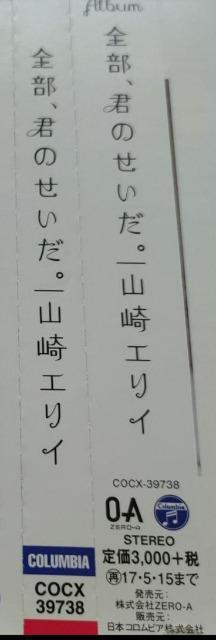 Album
全部、君のせいだ。|山崎エリイ
全部、君のせいだ。|山崎エリイ
COCX-39738
O-A
ZERO-A
Columbia
STEREO
定価3,000+税
再17・5・15まで
発売元:
株式会社ZERO-A
販売元:
日本コロムビア株式会社
COLUMBIA
COCX
39738